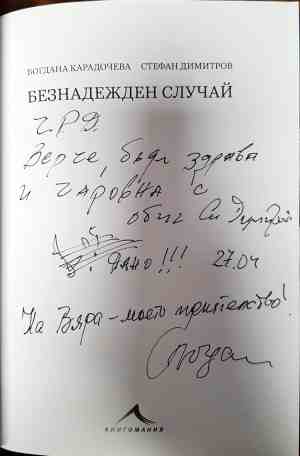 БОГДАНА КАРАДОЧЕВА СТЕФАН ДИМИТРОВ
БЕЗНАДЕЖДЕН СЛУЧАЙ
Ч.Р.Д.
Верче, бъди здрава
и чаровна с
обич Ст Димитров
27.04
На Вяра – моето приятелство!
Богдана
КНИГОМАНИЯ